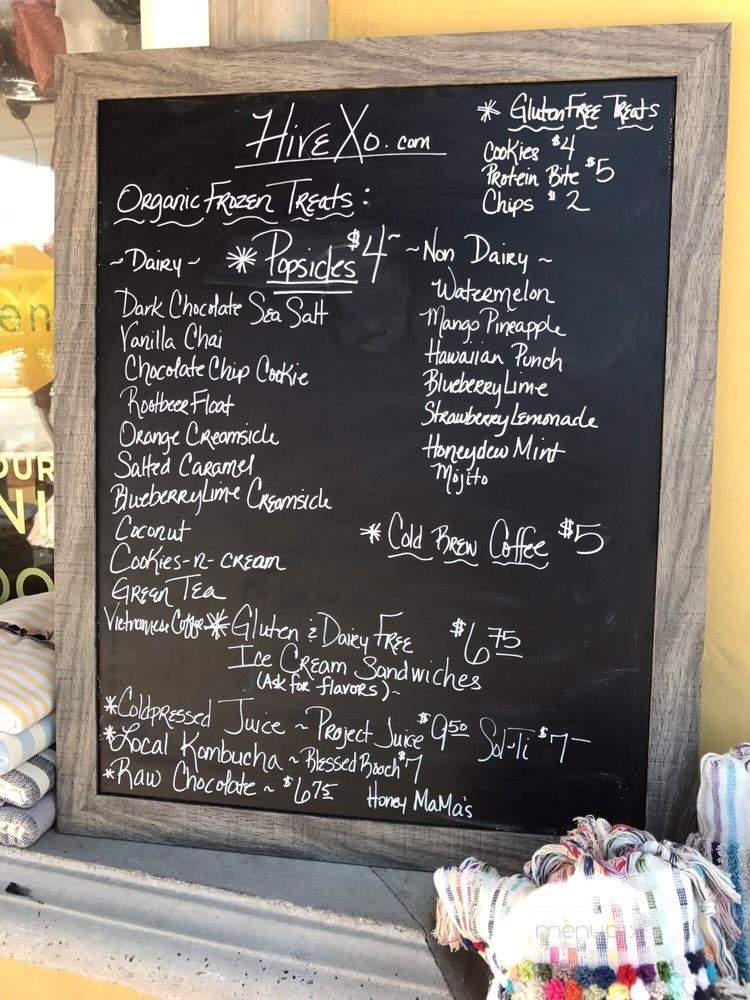 HiveXo.com
* Gluten Free Treats
Cookies $4
Protein Bite $5
Chips $2
Organic Frozen Treats:
~ Dairy ~
* Popsicles $4~
Dark Chocolate Sea Salt
Vanilla Chai
Chocolate Chip Cookie
Rootbeer Float
Orange Creamsicle
Salted Caramel
Blueberry Lime Creamsicle
Coconut
Cookies-n-cream
Green Tea
Vietnamese Coffee
~ Non Dairy ~
Watermelon
Mango Pineapple
Hawaiian Punch
Blueberry Lime
Strawberry Lemonade
Honeydew Mint
Mojito
* Cold Brew Coffee $5
* Gluten & Dairy Free $6.75
Ice Cream Sandwiches
(Ask for flavors)~
* Coldpressed Juice ~ Project Juice $9.50 Sol-Ti $7-
* Local Kombucha ~ Blessed Booch $7
* Raw Chocolate ~ $6.75 Honey MaMa's
en
OUR
NI
menupix